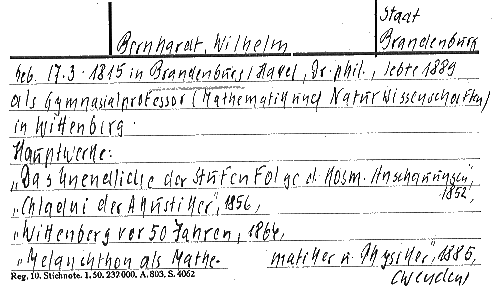 Staat
Bernhardt, Wilhelm Brandenburg
geb. 17.3.1815 in Brandenburg/Havel, Dr. phil., lebte 1889
als Gymnasialprofessor (Mathematik und Naturwissenschaften)
in Wittenberg.
Hauptwerke:
„Das Unendliche der Stufenfolge d. kosm. Anschauungen",
1852,
„Chladni der Akustiker", 1856,
„Wittenberg vor 50 Jahren, 1864,
„Melanchthon als Mathe- matiker u. Physiker", 1885,
Reg. 10. Stichnote. 1. 50. 237000. A. 803, S. 4062